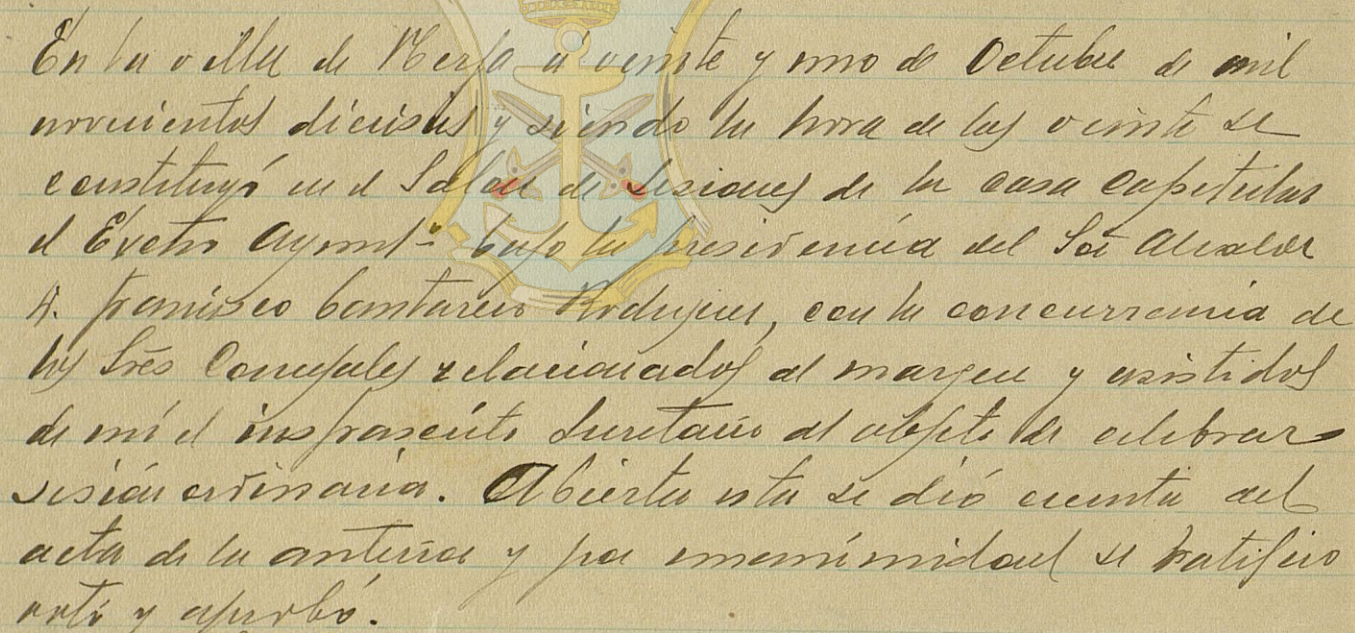 En la villa de Nerja a veinte y uno de Octubre de mil
novecientos dieciseis y siendo la hora de las veinte se
constituyó en el Salon de Sesiones de la casa Capitular
el Excmo Ayunt.º bajo la presidencia del Sor Alcalde
D. Francisco Cantarero Rodriguez, con la concurrencia de
los Sres Concejales relacionados al margen y asistidos
de mí el infrascrito Secretario al objeto de celebrar
sesión ordinaria. Abierta esta se dió cuenta del
acta de la anterior y por unanimidad se ratificó
y aprobó.